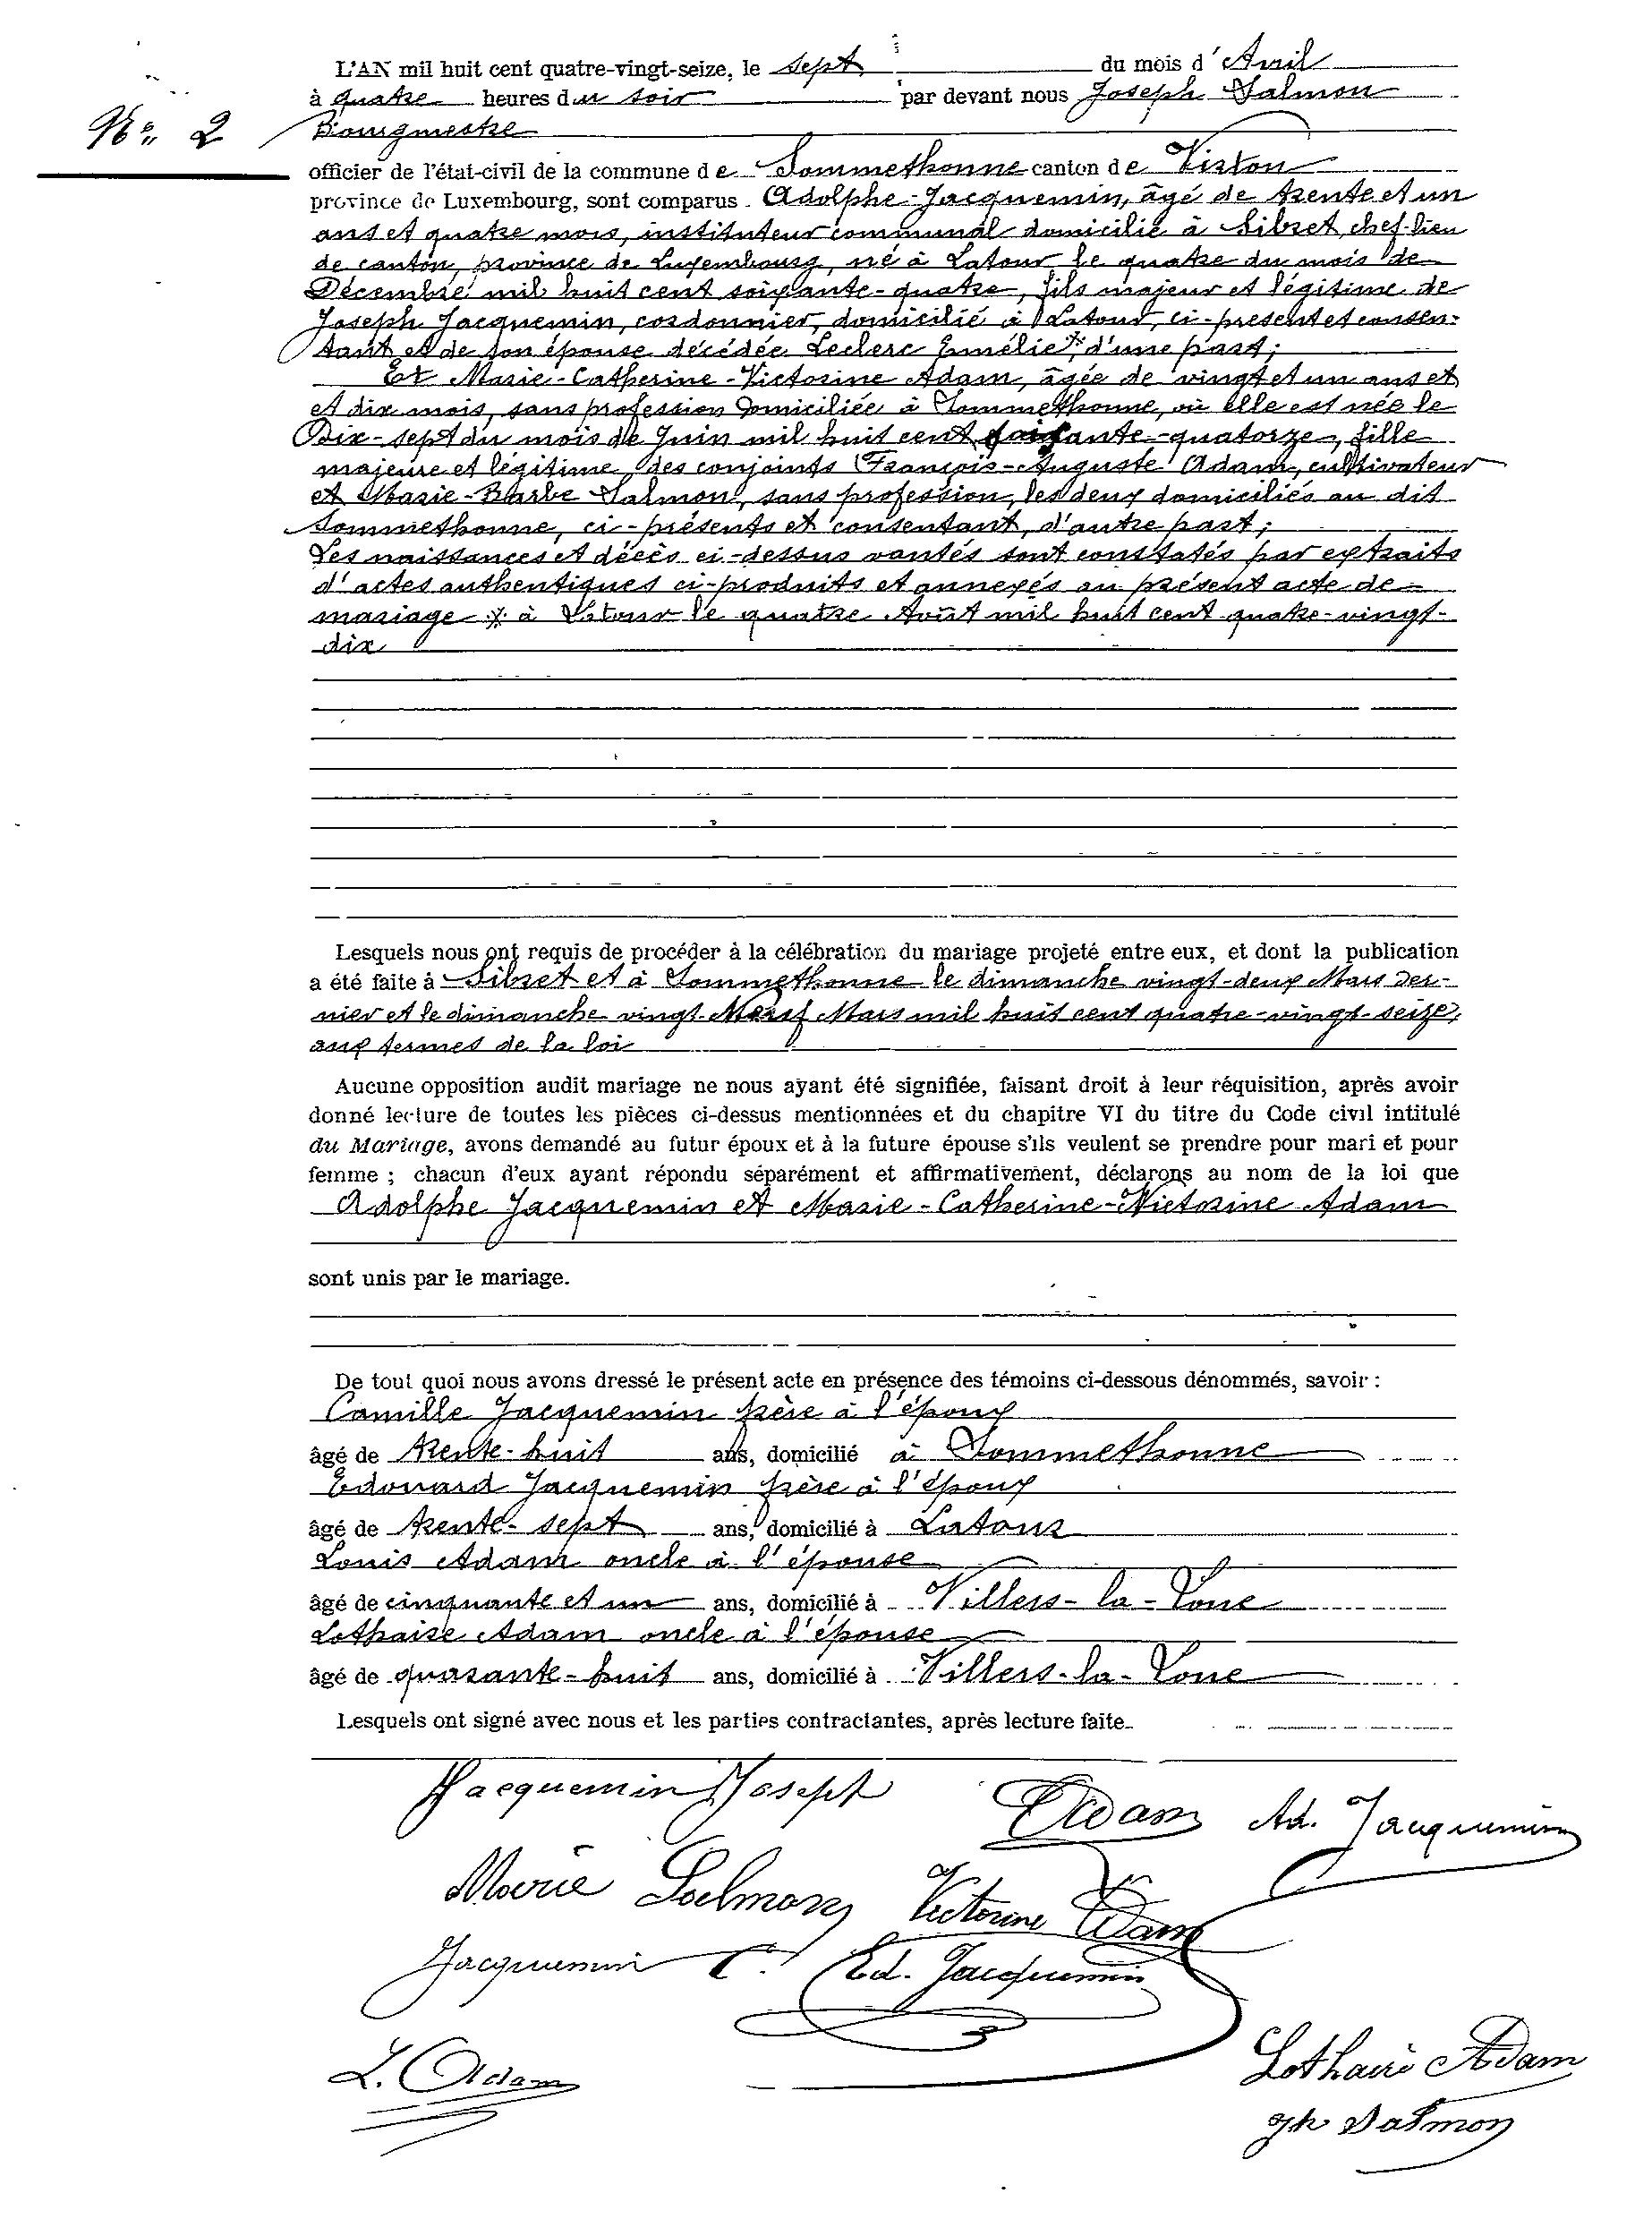 L'AN mil huit cent quatre-vingt-seize, le sept du mois d'Avril
à quatre heures du soir par devant nous Joseph Salmon
No. 2 Bourgmestre
officier de l'état-civil de la commune de Sommethonne canton de Virton
province de Luxembourg, sont comparus Adolphe-Jacquemin, âgé de trente et un
ans et quatre mois, instituteur communal domicilié à Sibret, chef-lieu
de canton, province de Luxembourg, né à Latour le quatre du mois de
Décembre mil huit cent soixante-quatre, fils majeur et légitime de
Joseph Jacquemin, cordonnier, domicilié à Latour, ci-présent et consen-
tant et de son épouse décédée Leclerc Emélie * d'une part;
Et Marie-Catherine-Victorine Adam, âgée de vingt et un ans et
et dix mois, sans profession domiciliée à Sommethonne, où elle est née le
Dix-sept du mois de Juin mil huit cent soixante-quatorze, fille
majeure et légitime des conjoints François-Auguste Adam, cultivateur
et Marie-Barbe Salmon, sans profession, les deux domiciliés au dit
Sommethonne, ci-présents et consentant, d'autre part;
Les naissances et décès ci-dessus vantés sont constatés par extraits
d'actes authentiques ci-produits et annexés au présent acte de
mariage * à Latour le quatre Août mil huit cent quatre-vingt-
dix
Lesquels nous ont requis de procéder à la célébration du mariage projeté entre eux, et dont la publication
a été faite à Sibret et à Sommethonne le dimanche vingt-deux Mars der-
nier et le dimanche vingt-Neuf Mars mil huit cent quatre-vingt-seize,
aux termes de la loi
Aucune opposition audit mariage ne nous ayant été signifiée, faisant droit à leur réquisition, après avoir
donné lecture de toutes les pièces ci-dessus mentionnées et du chapitre VI du titre du Code civil intitulé
du Mariage, avons demandé au futur époux et à la future épouse s'ils veulent se prendre pour mari et pour
femme ; chacun d'eux ayant répondu séparément et affirmativement, déclarons au nom de la loi que
Adolphe Jacquemin et Marie-Catherine-Victorine Adam
sont unis par le mariage.
De tout quoi nous avons dressé le présent acte en présence des témoins ci-dessous dénommés, savoir :
Camille Jacquemin frère à l'époux
âgé de trente-huit ans, domicilié à Sommethonne
Edouard Jacquemin frère à l'époux
âgé de trente-sept ans, domicilié à Latour
Louis Adam oncle à l'épouse
âgé de cinquante et un ans, domicilié à Villers-la-Loue
Lothaire Adam oncle à l'épouse
âgé de quarante-huit ans, domicilié à Villers-la-Loue
Lesquels ont signé avec nous et les parties contractantes, après lecture faite.
Jacquemin Joseph Adam Ad. Jacquemin
Marie Salmon Victorine Adam
Jacquemin C. Ed. Jacquemin
L. Adam Lothaire Adam
Jh Salmon